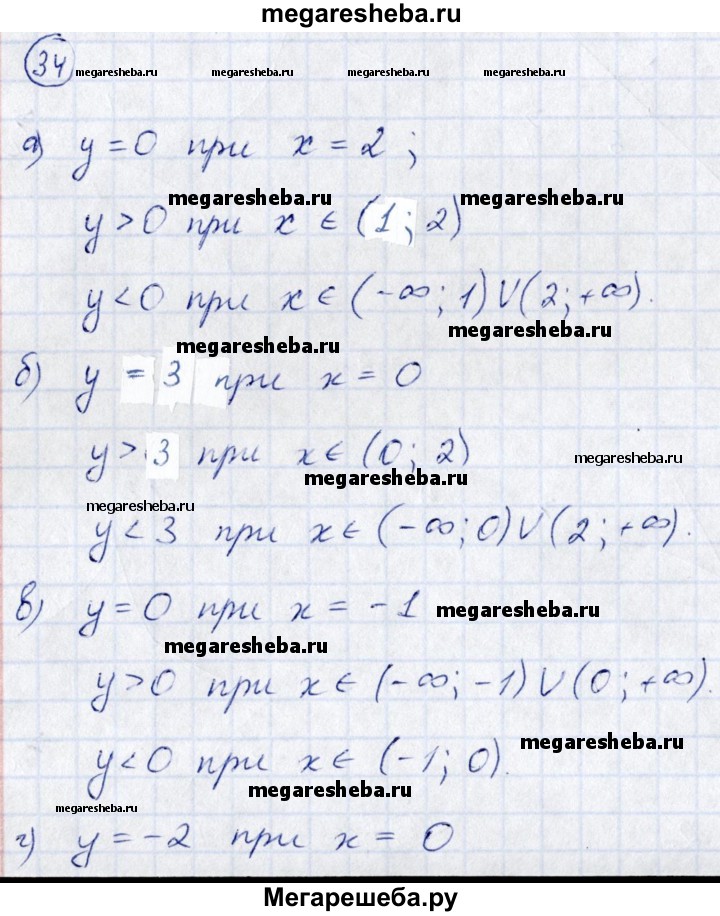 megaresheba.ru
34
megaresheba.ru megaresheba.ru megaresheba.ru megaresheba.ru
а) y = 0 при x = 2 ;
megaresheba.ru megaresheba.ru
y > 0 при x ∈ (1 ; 2)
y < 0 при x ∈ (-∞ ; 1) ∪ (2 ; +∞).
megaresheba.ru
megaresheba.ru
б) y = 3 при x = 0
y > 3 при x ∈ (0 ; 2)
megaresheba.ru
megaresheba.ru
megaresheba.ru
y < 3 при x ∈ (-∞ ; 0) ∪ (2 ; +∞).
в) y = 0 при x = -1 megaresheba.ru
megaresheba.ru
y > 0 при x ∈ (-∞ ; -1) ∪ (0 ; +∞).
megaresheba.ru
y < 0 при x ∈ (-1 ; 0).
megaresheba.ru
megaresheba.ru
г) y = -2 при x = 0
Мегарешеба.ру